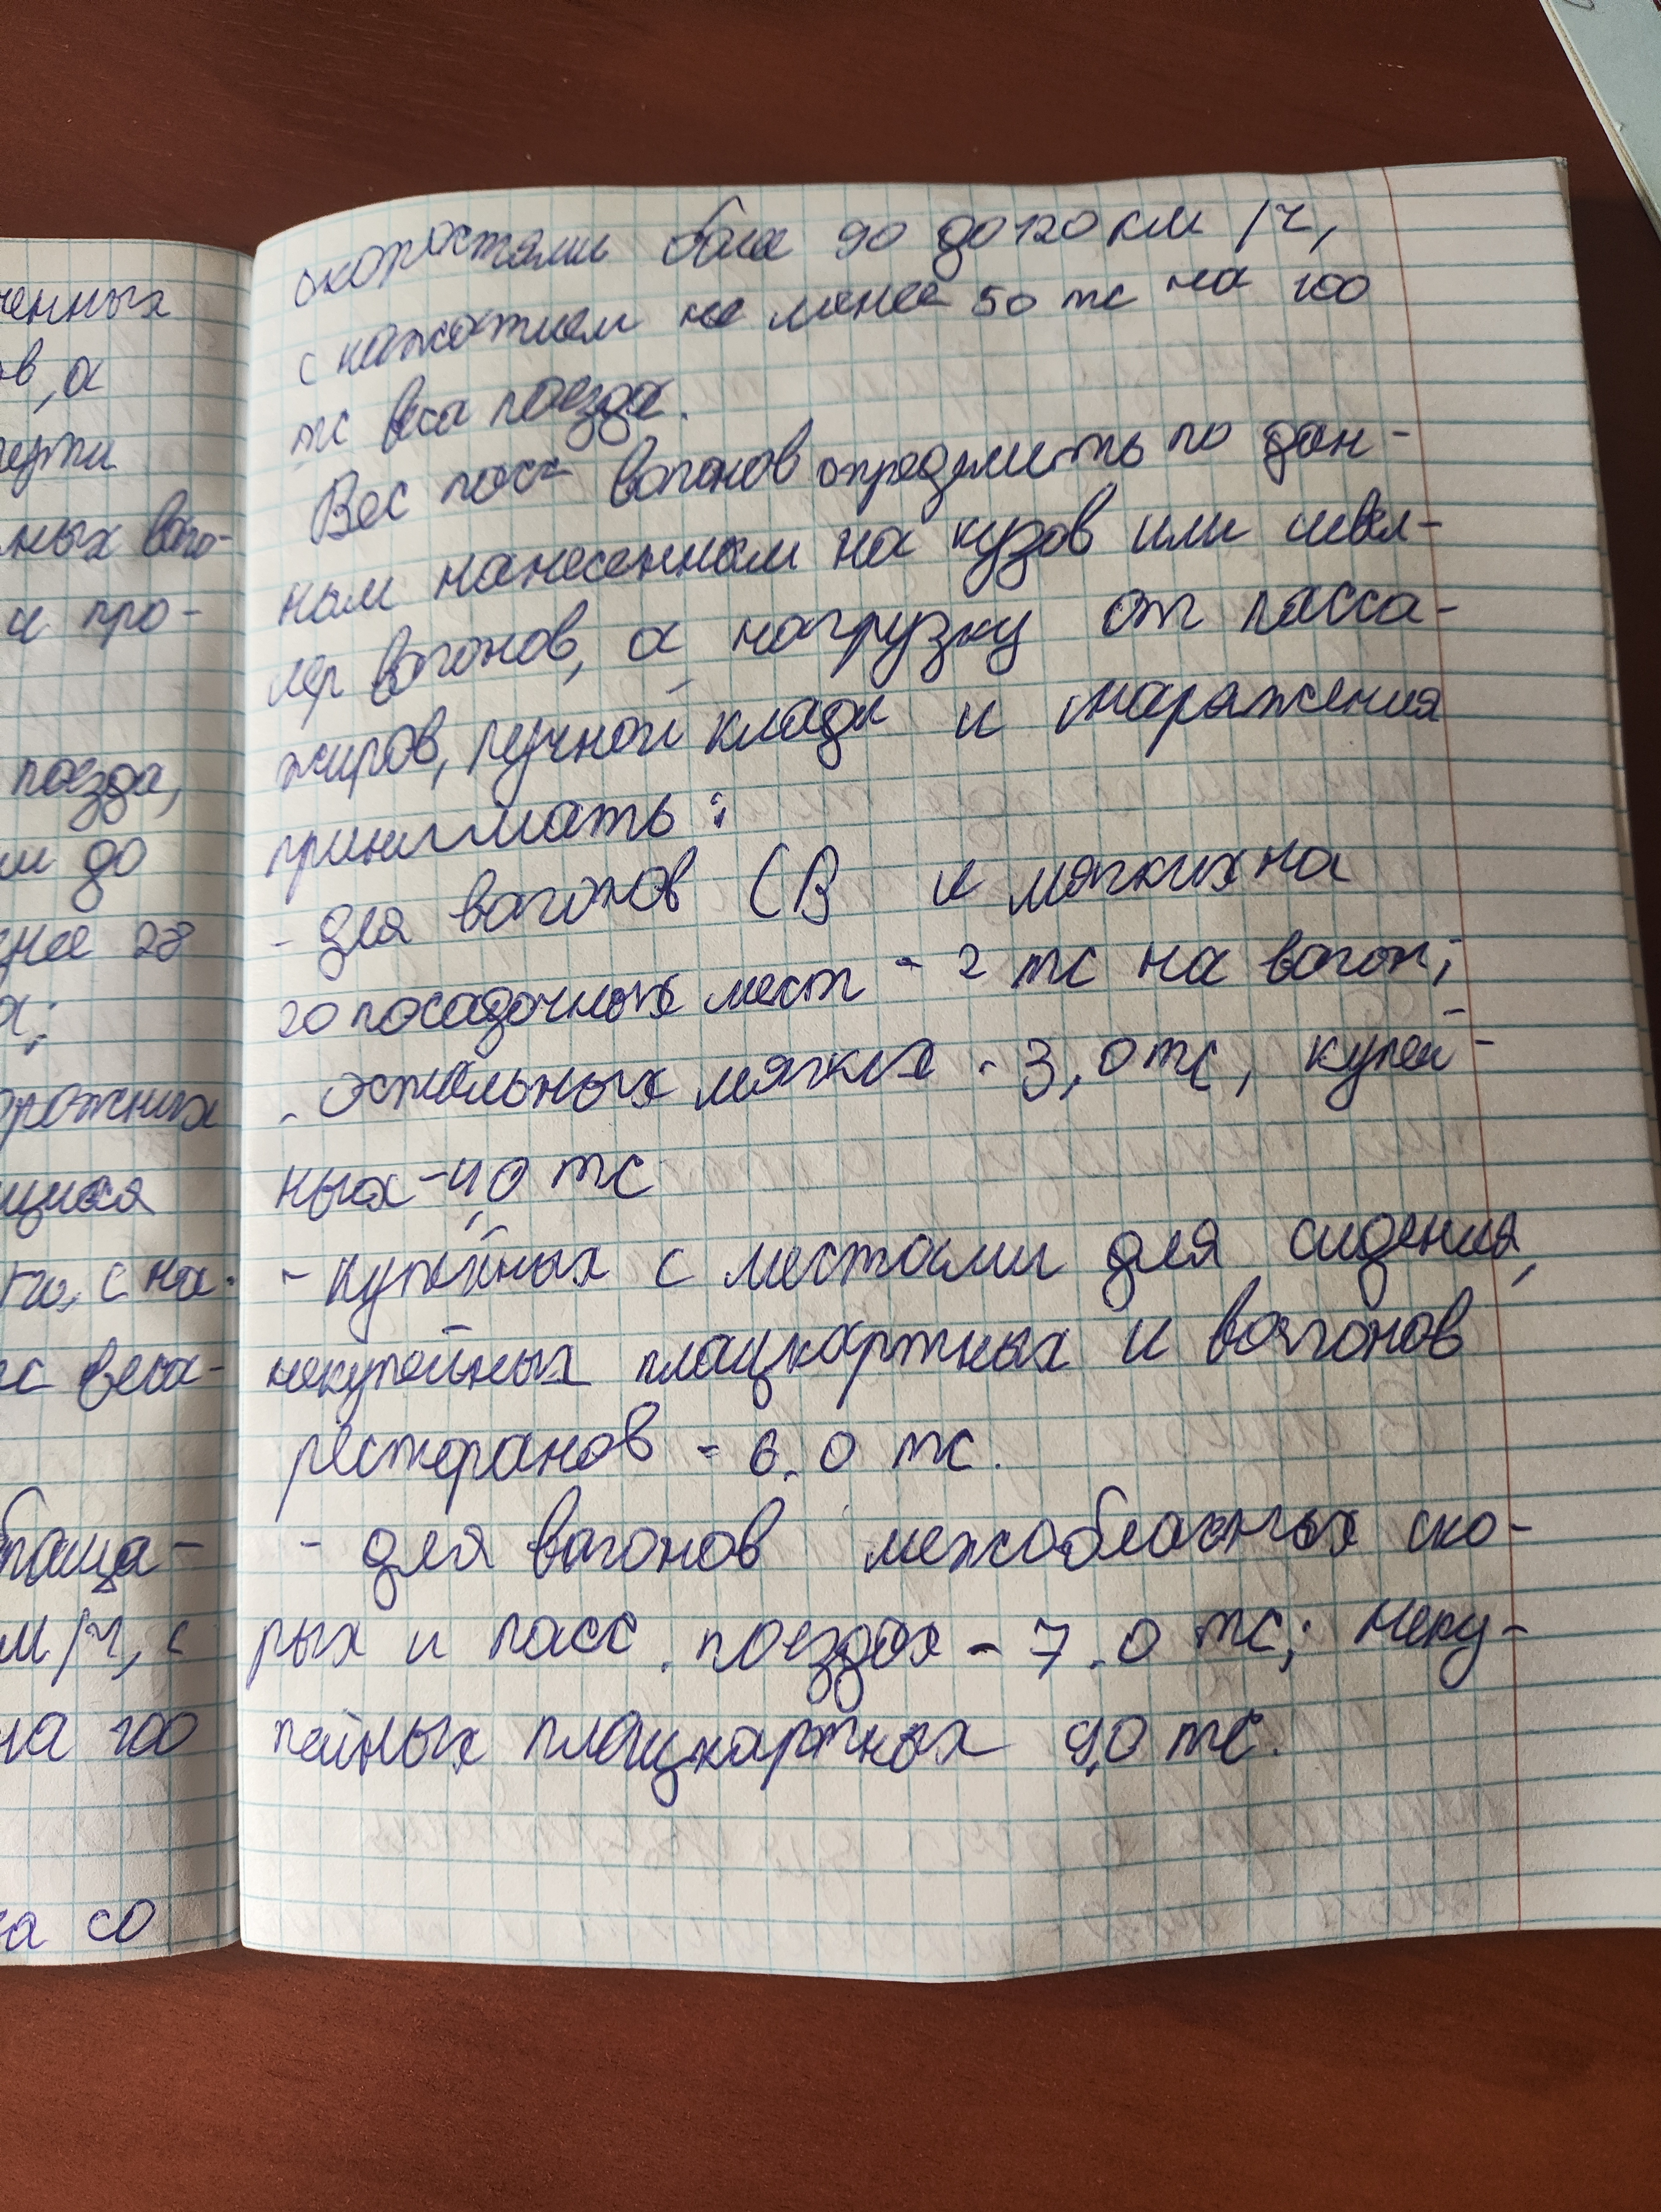 ченных
ов, а
ных ваго-
и про-
поезда,
ми до
нее 28
а;
орожных
щихся
с на-
тс веса
обраща-
км/ч, с
на 100
за со
скоростями боле 90 до 120 км/ч,
с нажатием не менее 50 тс на 100
тс веса поезда.
Вес пасс вагонов определить по дан-
ным нанесенным на кузов или швел-
лер вагонов, а нагрузку от пасса-
жиров, ручной клади и снаряжения
принимать:
- для вагонов СВ и мягких на
20 посадочных мест - 2 тс на вагон;
- остальных мягких - 3,0 тс, купей-
ных - 4,0 тс
- купейных с местами для сидения,
некупейных плацкартных и вагонов
ресторанов - 6.0 тс.
- для вагонов межобласных ско-
рых и пасс. поездах - 7.0 тс; неку-
пейных плацкартных 9,0 тс.